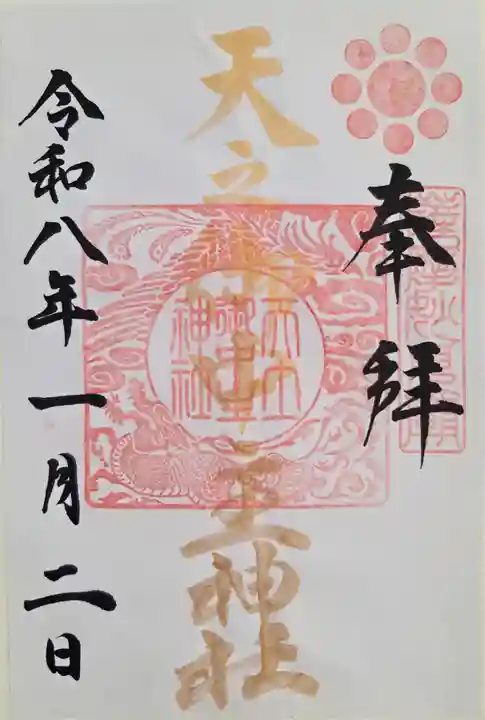 奉拝
天之御中主神社
令和八年一月二日